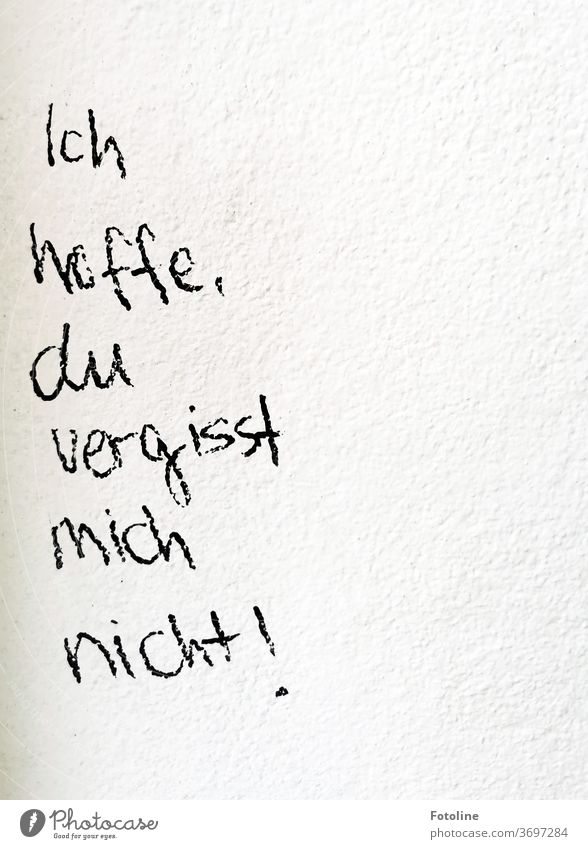 Ich
hoffe,
du
vergisst
mich
nicht!
PHOTOCASE
Good for your eyes.
Fotoline
# 3697284